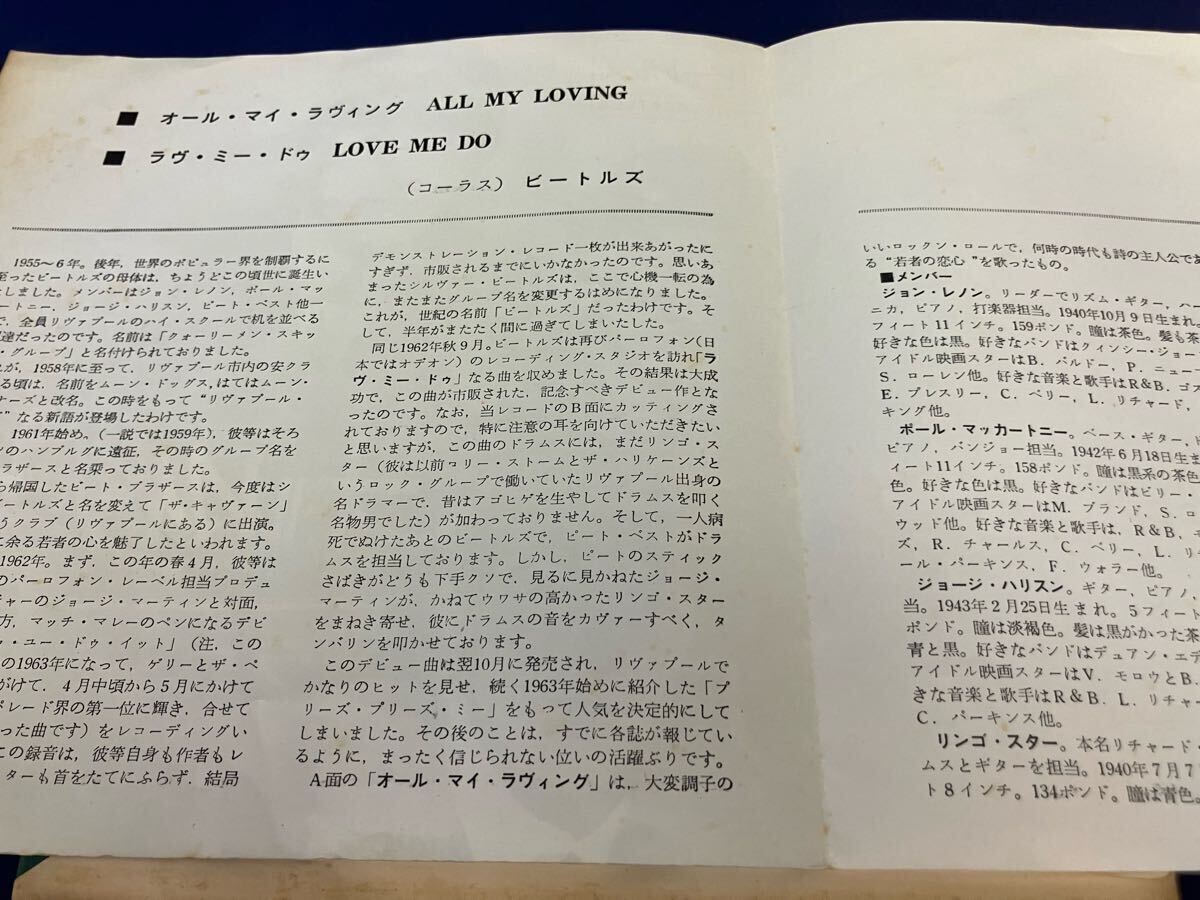 ■ オール・マイ・ラヴィング ALL MY LOVING
■ ラヴ・ミー・ドゥ LOVE ME DO
(コーラス) ビートルズ
1955〜6年。後年，世界のポピュラー界を制覇するに
至ったビートルズの母体は，ちょうどこの頃世に誕生い
たしました。メンバーはジョン・レノン，ポール・マッ
ートニー，ジョージ・ハリスン，ピート・ベスト他一
で，全員リヴァプールのハイ・スクールで机を並べる
達だったのです。名前は「クォーリーメン・スキッ
・グループ」と名付けられておりました。
が，1958年に至って，リヴァプール市内の安クラ
る頃は，名前をムーン・ドッグス，はてはムーン・
ナーズと改名。この時をもって“リヴァプール・
”なる新語が登場したわけです。
1961年始め，(一説では1959年)，彼等はそろ
ンのハンブルグに遠征，その時のグループ名を
ラザースと名乗っておりました。
ら帰国したビート・ブラザースは，今度はシ
ビートルズと名を変えて「ザ・キャヴァーン」
うクラブ（リヴァプールにある）に出演。
に余る若者の心を魅了したといわれます。
1962年。まず，この年の春4月，彼等は
のパーロフォン・レーベル担当プロデュ
サーのジョージ・マーティンと対面，
方，マッチ・マレーのペンになるデビ
・ユー・ドゥ・イット」（注，この
の1963年になって，ゲリーとザ・ペ
がけて，4月中頃から5月にかけて
パレード界の第一位に輝き，合せて
った曲です）をレコーディングい
この録音は，彼等自身も作者もレ
ターも首をたてにふらず，結局
デモンストレーション・レコード一枚が出来あがったに
すぎず，市販されるまでにいかなかったのです。思いあ
まったシルヴァー・ビートルズは，ここで心機一転の為
に，またまたグループ名を変更するはめになりました。
これが，世紀の名前「ビートルズ」だったわけです。そ
して，半年がまたたく間に過ぎてしまいたした。
同じ1962年秋9月。ビートルズは再びパーロフォン(日
本ではオデオン)のレコーディング・スタジオを訪れ「ラ
ヴ・ミー・ドゥ」なる曲を収めました。その結果は大成
功で，この曲が市販された，記念すべきデビュー作とな
ったのです。なお，当レコードのB面にカッティングさ
れておりますので，特に注意の耳を向けていただきたい
と思いますが，この曲のドラムスには，まだリンゴ・ス
ター（彼は以前ロリー・ストームとザ・ハリケーンズと
いうロック・グループで働いていたリヴァプール出身の
名ドラマーで，昔はアゴヒゲを生やしてドラムスを叩く
名物男でした）が加わっておりません。そして，一人病
死でぬけたあとのビートルズで，ピート・ベストがドラ
ムスを担当しております。しかし，ピートのスティック
さばきがどうも下手クソで，見るに見かねたジョージ・
マーティンが，かねてウワサの高かったリンゴ・スター
をまねき寄せ，彼にドラムスの音をカヴァーすべく，タ
ンバリンを叩かせております。
このデビュー曲は翌10月に発売され，リヴァプールで
かなりのヒットを見せ，続く1963年始めに紹介した「プ
リーズ・プリーズ・ミー」をもって人気を決定的にして
しまいました。その後のことは，すでに各誌が報じてい
るように，まったく信じられない位いの活躍ぶりです。
A面の「オール・マイ・ラヴィング」は，大変調子の
いいロックン・ロールで，何時の時代も詩の主人公であ
る“若者の恋心”を歌ったもの。
■メンバー
ジョン・レノン。リーダーでリズム・ギター，ハー
ニカ，ピアノ，打楽器担当。1940年10月9日生まれ。
フィート11インチ。159ポンド。瞳は茶色。髪も茶
好きな色は黒。好きなバンドはクィンシー・ジョー
アイドル映画スターはB．バルドー，P．ニュー
S．ローレン他。好きな音楽と歌手はR＆B．ゴス
E．プレスリー，C．ベリー，L．リチャード，
キング他。
ポール・マッカートニー。ベース・ギター，ド
ピアノ，バンジョー担当。1942年6月18日生ま
ィート11インチ。158ポンド。瞳は黒系の茶色
色。好きな色は黒。好きなバンドはビリー・
アイドル映画スターはM．ブランド，S．ロ
ウッド他。好きな音楽と歌手は，R＆B，モ
ズ，R．チャールス，C．ベリー，L．リ
ール・パーキンス，F．ウォラー他。
ジョージ・ハリスン。ギター，ピアノ，
当。1943年2月25日生まれ。5フィート
ポンド。瞳は淡褐色。髪は黒がかった茶
青と黒。好きなバンドはデュアン・エデ
アイドル映画スターはV．モロウとB．
きな音楽と歌手はR＆B．L．リチャー
C．パーキンス他。
リンゴ・スター。本名リチャード・
ムスとギターを担当。1940年7月7
ト8インチ。134ポンド。瞳は青色。